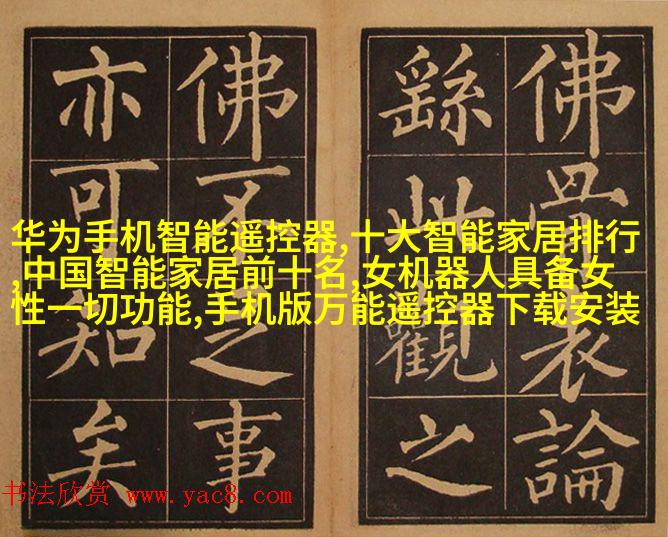 华为手机智能遥控器,十大智能家居排行
,中国智能家居前十名,女机器人具备女
性一切功能,手机版万能遥控器下载安装
佛骨表論
繇此觀之
佛不足事
亦可知矣
书法欣赏 www.yac8.com